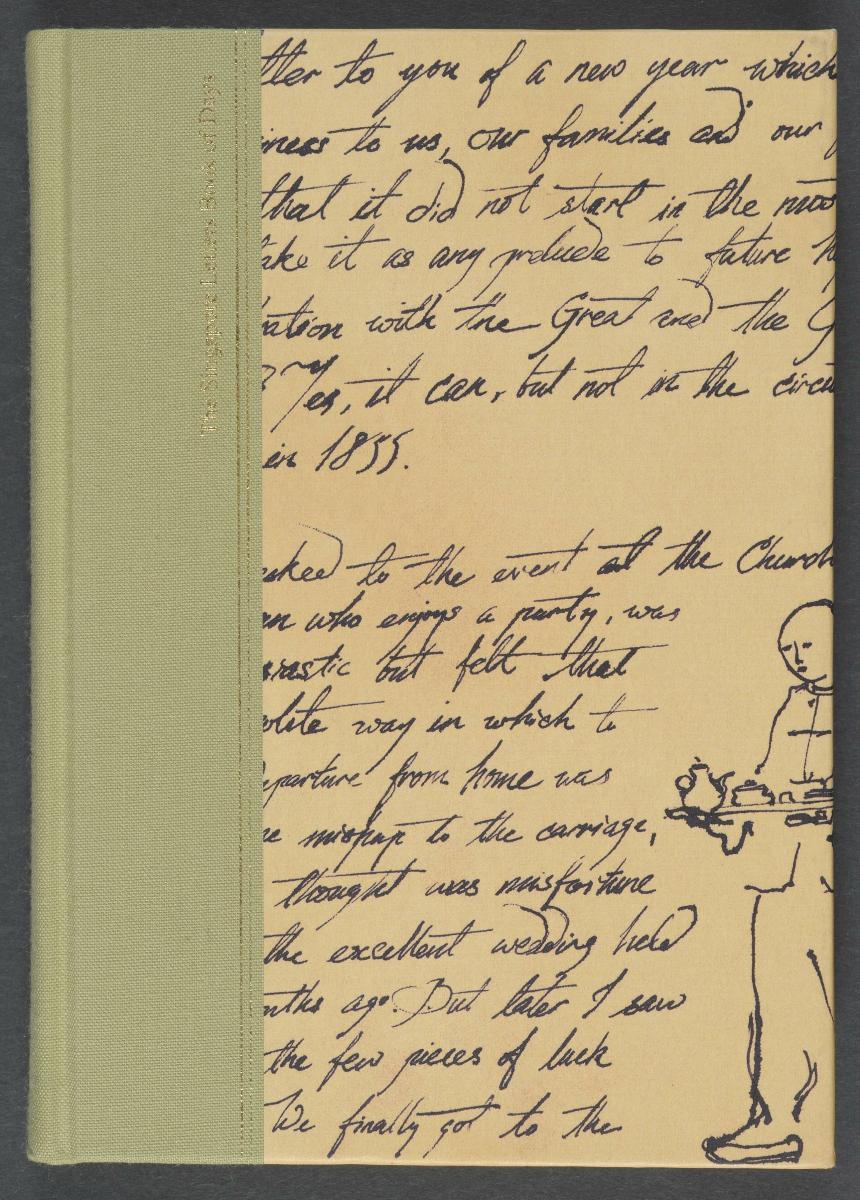 The Singapore Letters Book of Days
tter to you of a new year which
iness to us, our families and our
that it did not start in the mos
take it as any prelude to future h
bation with the Great and the G
? Yes, it can, but not in the circu
in 1855.
asked to the event at the Church
en who enjoys a party, was
siastic but felt that
olite way in which to
eparture from home was
he mishap to the carriage,
thought was misfortune
the excellent wedding held
nths ago. But later I saw
the few pieces of luck
We finally got to the